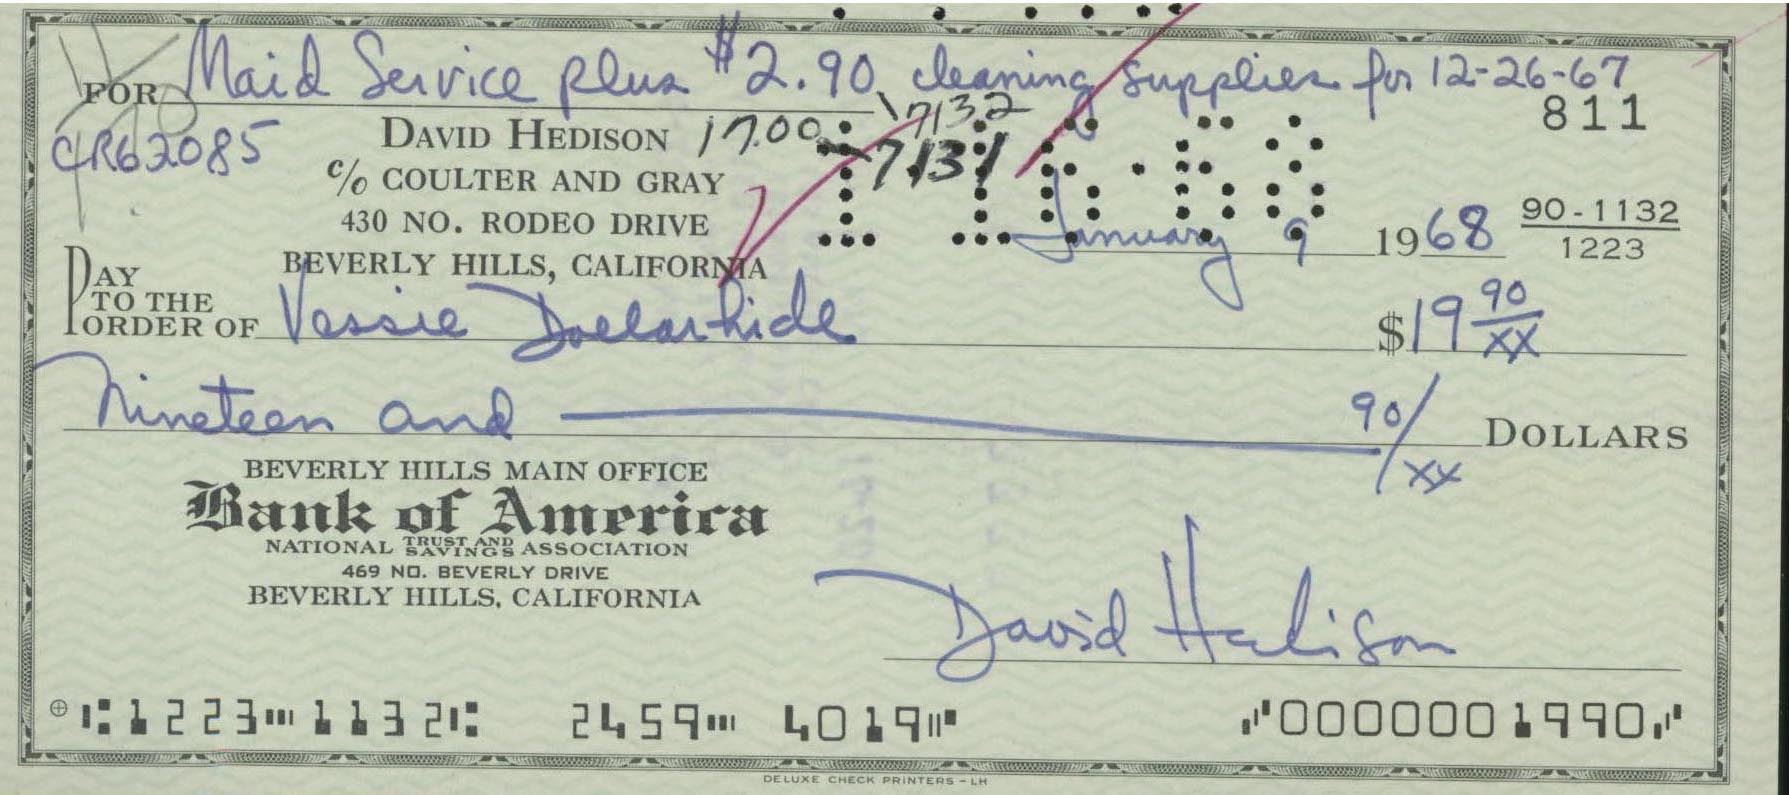 FOR Maid Service plus $2.90 cleaning supplies for 12-26-67
811
CR62085
DAVID HEDISON 17.00 7132
C/O COULTER AND GRAY 7131
430 NO. RODEO DRIVE
BEVERLY HILLS, CALIFORNIA
1-16-68
January 9 1968
90-1132
1223
PAY TO THE ORDER OF Vessie Dollarhide $19 90/XX
Nineteen and 90/XX DOLLARS
BEVERLY HILLS MAIN OFFICE
Bank of America
NATIONAL TRUST AND SAVINGS ASSOCIATION
469 NO. BEVERLY DRIVE
BEVERLY HILLS, CALIFORNIA
David Hedison
⑆1223⑉1132⑆ 2459⑉4019⑈ ⑇0000001990⑇
DELUXE CHECK PRINTERS - LH